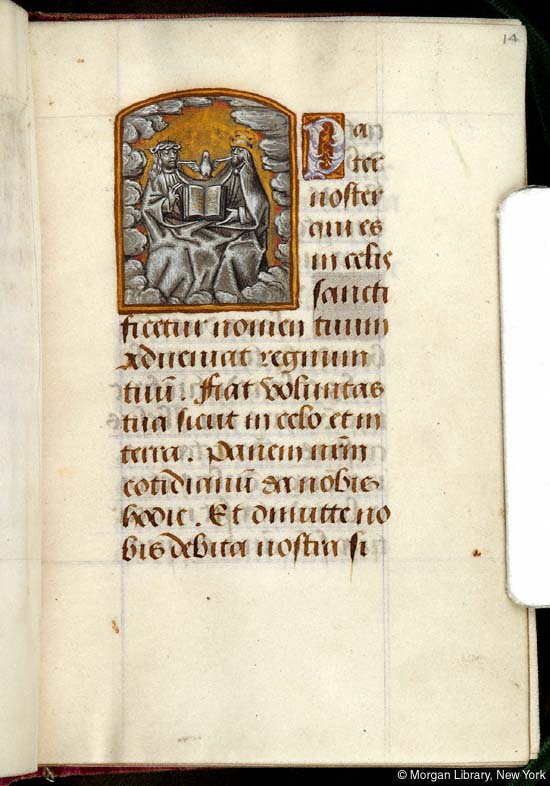 14
Pa
ter
noster
qui es
in celis
sancti
ficetur nomen tuum
adveniat regnum
tuū. Fiat voluntas
tua sicut in celo et in
terra. Panem nr̄m
cotidianū da nobis
hodie. Et dimitte no
bis debita nostra si
© Morgan Library, New York